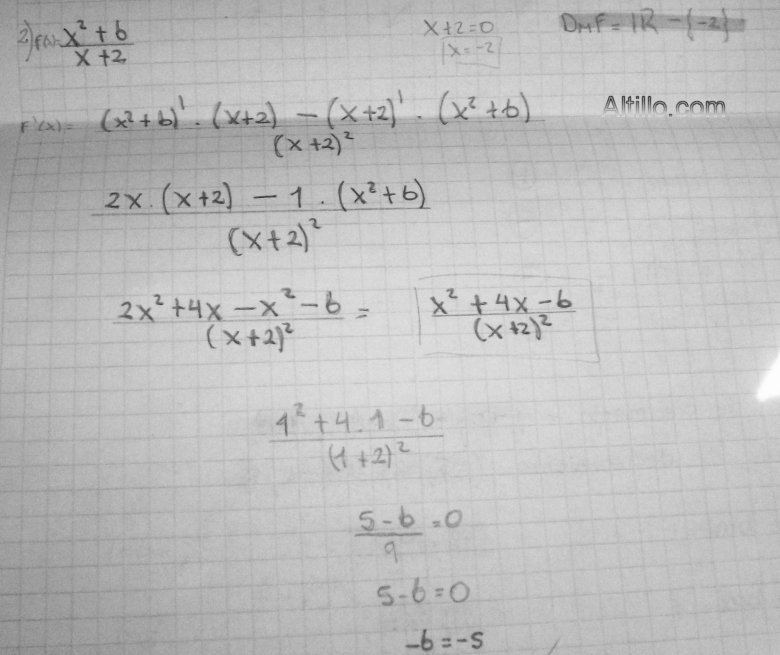 2) f(x)= (x² + b)/(x + 2)    x+2=0    Dmf = IR - {-2}
x=-2
Altillo.com
F'(x)= ((x² + b)' . (x+2) - (x+2)' . (x² + b))/(x+2)²
(2x . (x+2) - 1 . (x² + b))/(x+2)²
(2x² + 4x - x² - b)/(x+2)² = (x² + 4x - b)/(x+2)²
(1² + 4 . 1 - b)/(1+2)²
(5 - b)/9 = 0
5 - b = 0
-b = -5